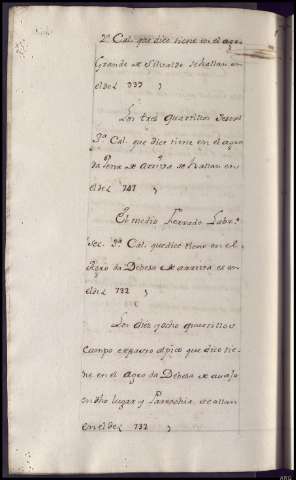 2ª Cal. que dice tiene en el agro
Grande de Silvalde se hallan en
el de £ 737
Los tres quartillos Secos
3ª Cal. que dice tiene en el agro
da Pena de arriva se hallan en
el de £ 747
El medio Ferrado Labrª
Sec. 3ª Cal. que dice tiene en el
Agro da Debesa de arriva es en
el de £ 732
Los diez y ocho quartillos
Campo espacio al pico que dice tie-
ne en el Agro da Debesa de avajo
en dho lugar y Parrochia se allan
en el de £ 732